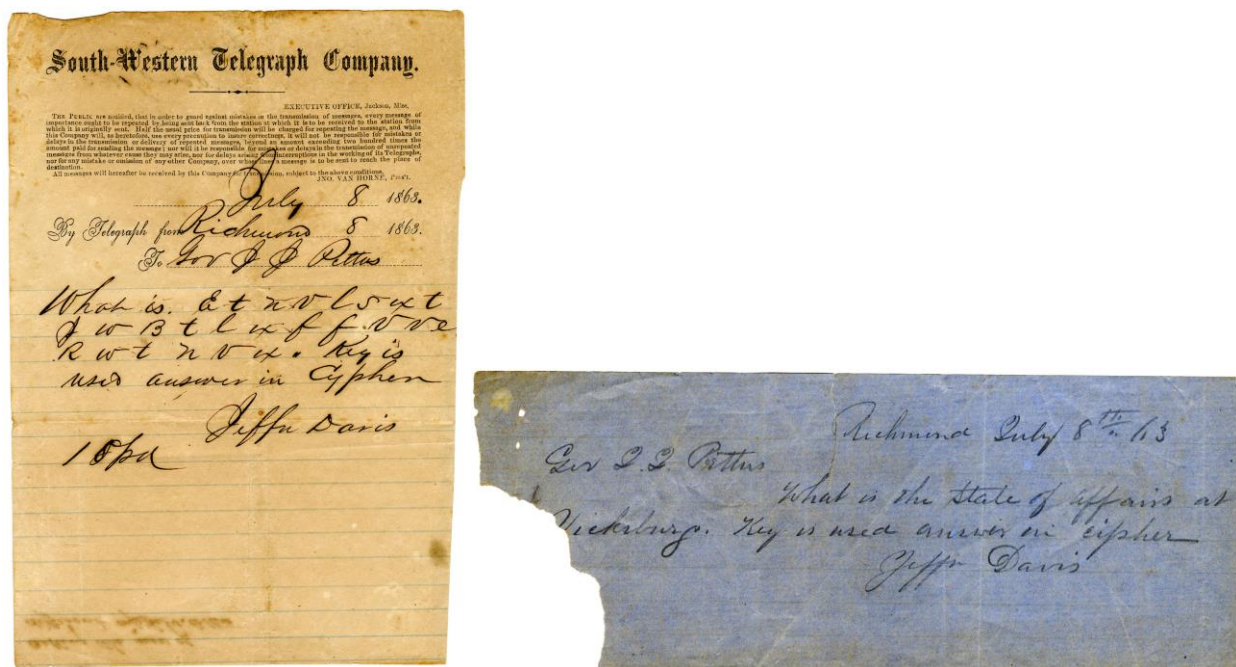 South-Western Telegraph Company.
EXECUTIVE OFFICE, Jackson, Miss.
THE PUBLIC are notified, that in order to guard against mistakes in the transmission of messages, every message of
importance ought to be repeated by being sent back from the station at which it is to be received to the station from
which it is originally sent. Half the usual price for transmission will be charged for repeating the message, and while
this Company will, as heretofore, use every precaution to insure correctness, it will not be responsible for mistakes or
delays in the transmission or delivery of repeated messages, beyond an amount exceeding two hundred times the
amount paid for sending the message; nor will it be responsible for mistakes or delays in the transmission of unrepeated
messages from whatever cause they may arise, nor for delays arising from interruptions in the working of its Telegraphs,
nor for any mistake or omission of any other Company, over whose lines a message is to be sent to reach the place of
destination.
All messages will hereafter be received by this Company for transmission, subject to the above conditions.
JNO. VAN HORNE, Pres't.
July 8 1863.
By Telegraph from Richmond 8 1863.
To Gov J J Pettus
What is. E t n v l s x t
J w B t l x f f. v v e
R w t n v x. Key is
used answer in Cypher
Jeffn Davis
Richmond July 8th 63
Gov J.J. Pettus
What is the state of affairs at
Vicksburg. Key is used answer in cipher
Jeffn Davis